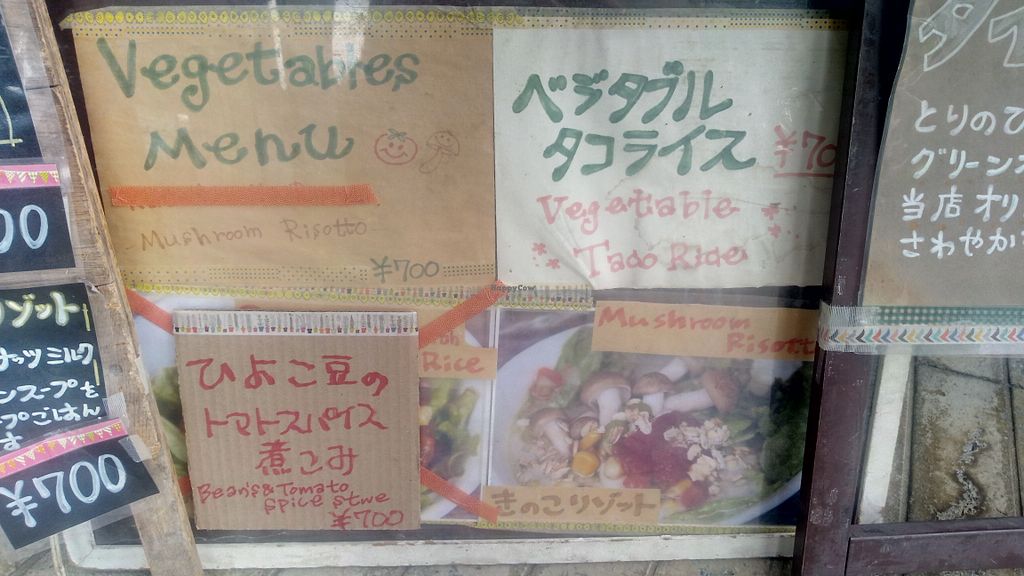 Vegetables
Menu
Mushroom Risotto
¥700
ベジタブル
タコライス
¥70
Vegetable
Taco Rice
HappyCow
ひよこ豆の
トマトスパイス
煮こみ
Beans & Tomato
spice stwe
¥700
Rice
Mushroom
Risotto
きのこリゾット
00
リゾット
ナッツミルク
ンスープを
プごはん
す
¥700
とりのひ
グリーンス
当店オリ
さわやか